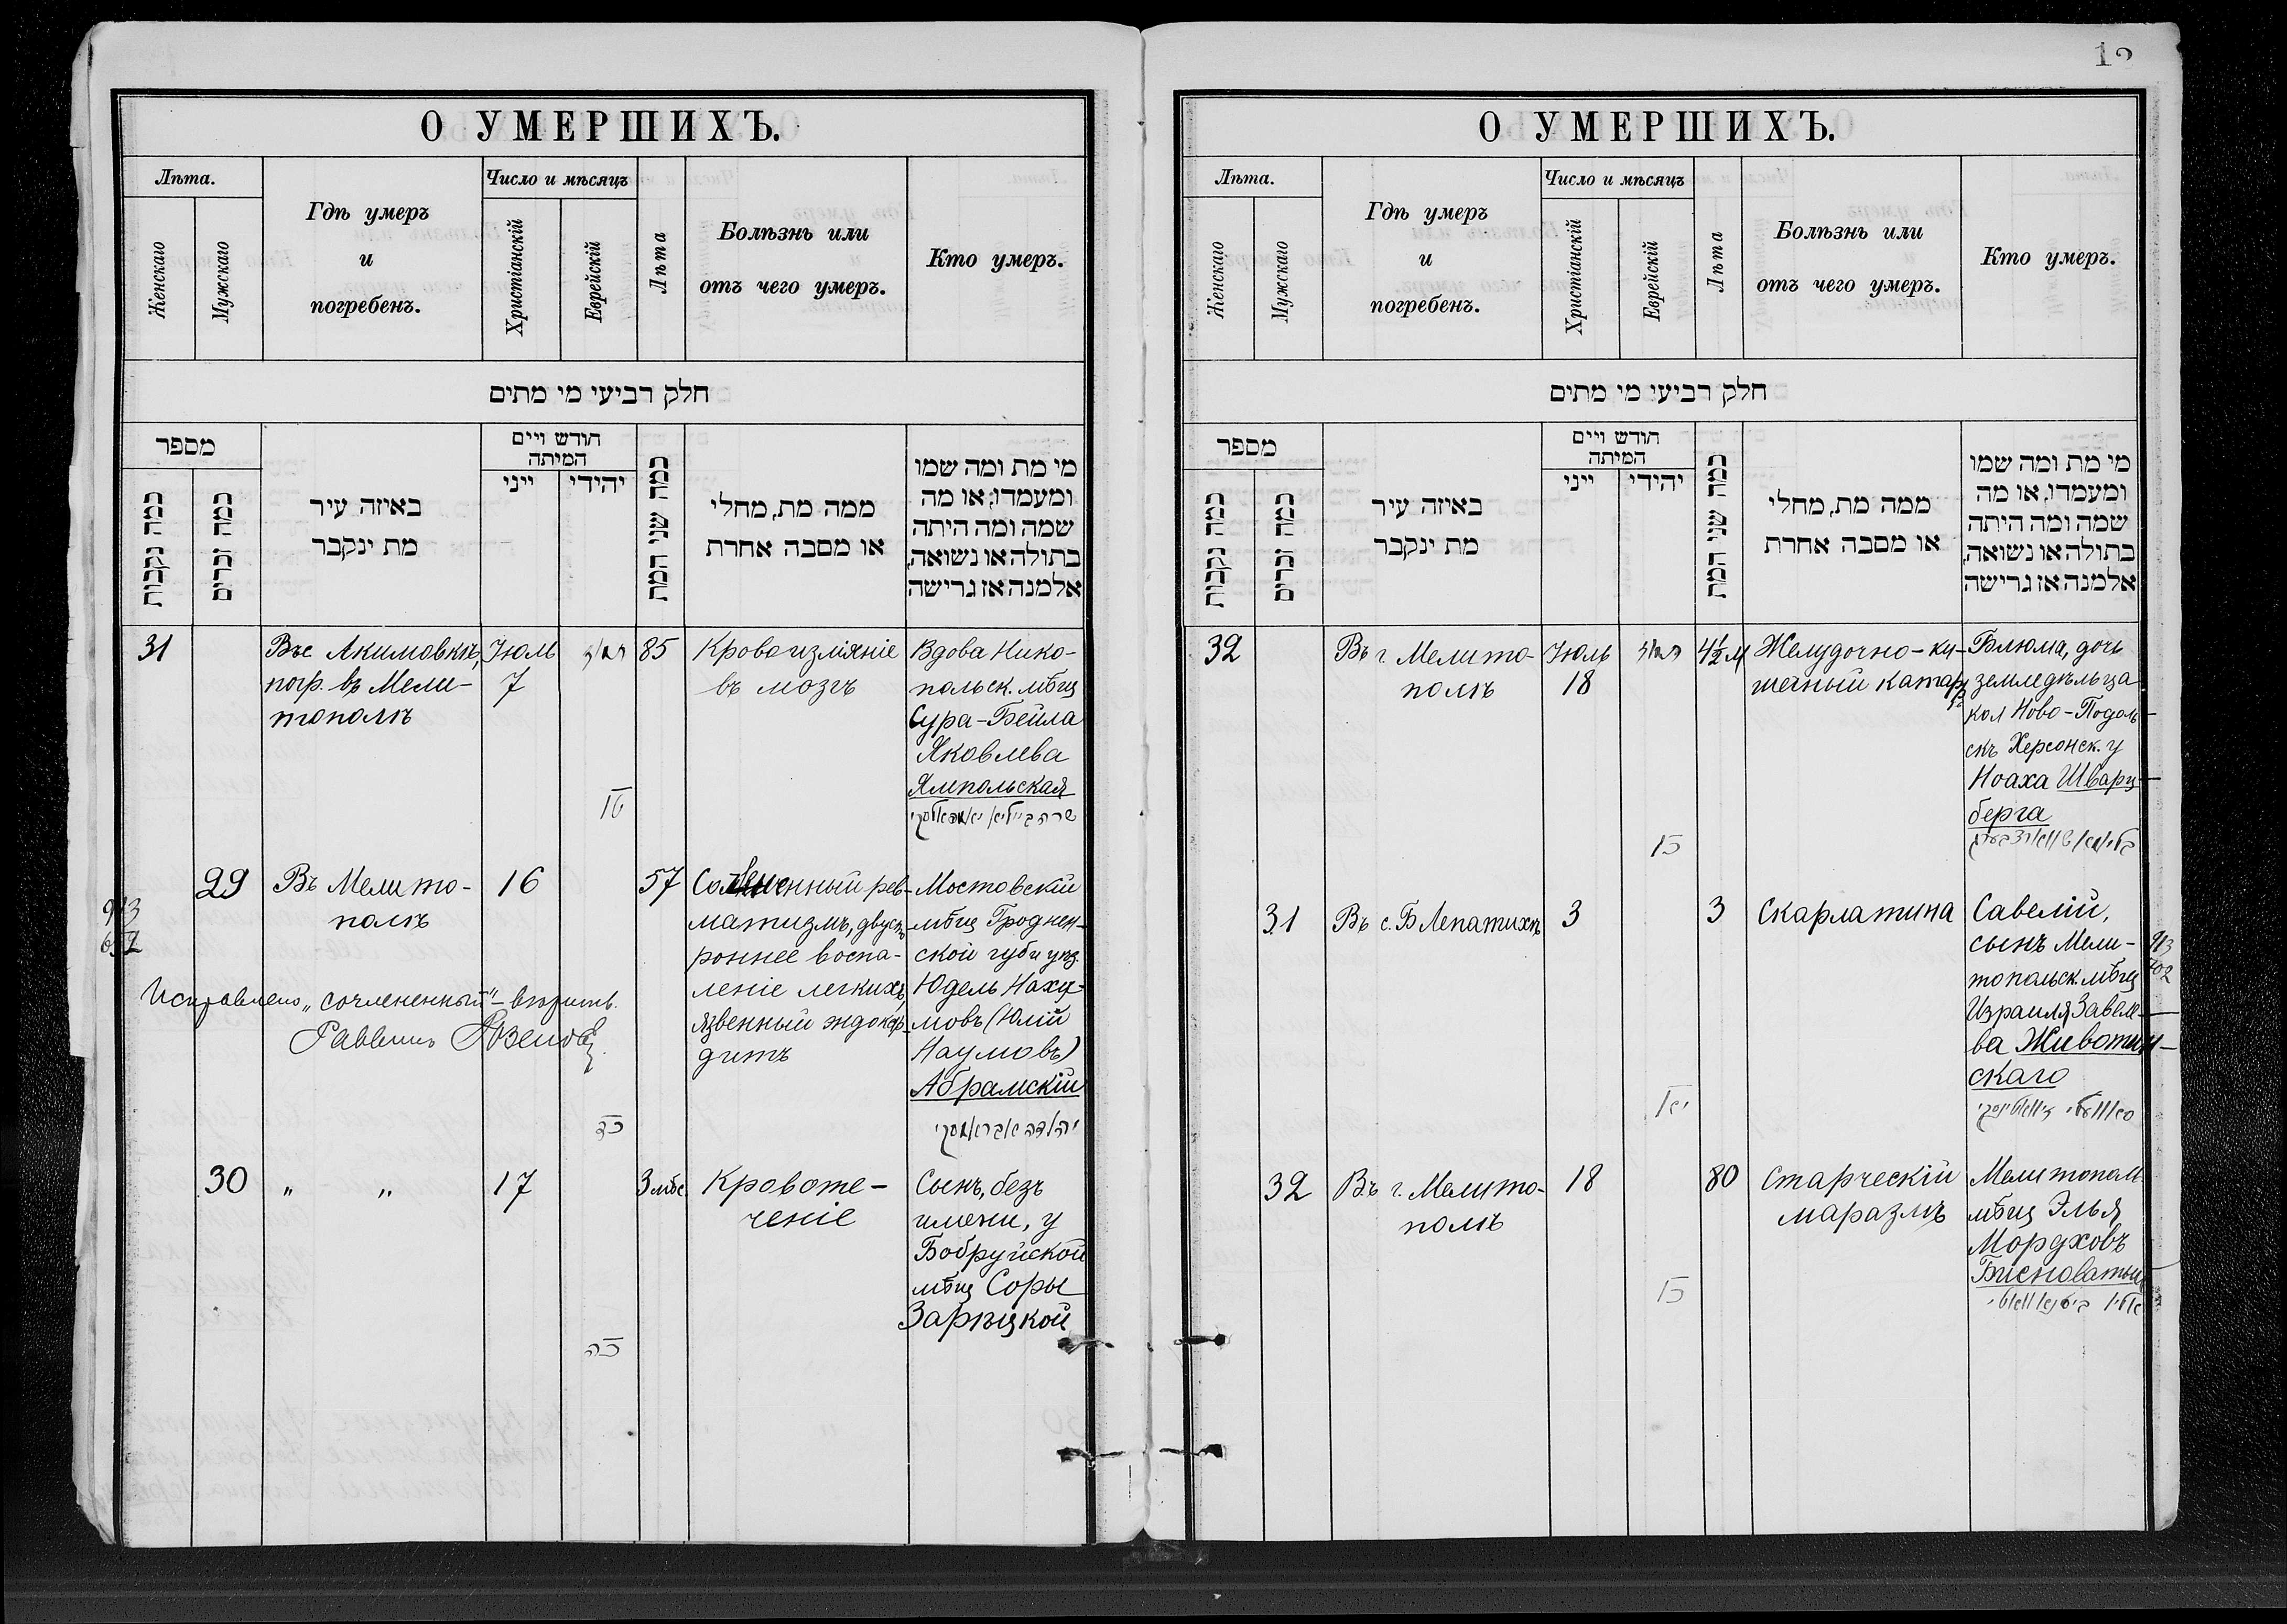 12
О УМЕРШИХЪ.
Лѣта.
Женскаю
Мужскаю
Гдѣ умеръ
и
погребенъ.
Число и мѣсяцъ
Христіанскій
Еврейскій
Лѣта
Болѣзнь или
отъ чего умеръ.
Кто умеръ.
חלק רביעי מי מתים
מספר
כמה נקבות
כמה זכרים
באיזה עיר
מת ינקבר
חודש ויים
המיתה
ייני
יהידי
כמה שני המת
ממה מת, מחלי
או מסבה אחרת
מי מת ומה שמו
ומעמדו, או מה
שמה ומה היתה
בתולה או נשואה,
אלמנה אז גרישה
31
Въ с Акимовкѣ,
погр. въ Мели-
тополѣ
Іюль
7
תמוז
טז
85
Кровоизліяніе
въ мозгъ
Вдова Нико-
польск. мѣщ
Сура-Бейла
Яковлева
Ямпольская
29
Въ Мелито-
полѣ
16
כד
57
рев-
матизмъ, двуст
роннее воспа-
леніе легкихъ,
язвенный эндокар-
дитъ
Мостовскій
мѣщ Гроднен-
ской губ
Юдель Наху-
мовъ (Юлій
Наумовъ)
Абрамскій
יהודה אבראמסקי
Исправлено „сочлененный“ – вѣрить.
Раввинъ
30
„ „
17
כה
3 мѣс
Кровоте-
ченіе
Сынъ, безъ
имени, у
Бобруйской
мѣщ Соры
Зарѣцкой
О УМЕРШИХЪ.
Лѣта.
Женскаю
Мужскаю
Гдѣ умеръ
и
погребенъ.
Число и мѣсяцъ
Христіанскій
Еврейскій
Лѣта
Болѣзнь или
отъ чего умеръ.
Кто умеръ.
חלק רביעי מי מתים
מספר
כמה נקבות
כמה זכרים
באיזה עיר
מת ינקבר
חודש ויים
המיתה
ייני
יהידי
כמה שני המת
ממה מת, מחלי
או מסבה אחרת
מי מת ומה שמו
ומעמדו, או מה
שמה ומה היתה
בתולה או נשואה,
אלמנה אז גרישה
32
Въ г. Мелито-
полѣ
Іюль
18
תמוז
כו
4½ м
Желудочно-ки-
шечный катарръ
Блюма, дочь
земледѣльца
кол Ново-Подоль-
скъ Херсонск. у
Ноаха Шварц-
берга
31
Въ с. Б Лепатихѣ
3
יא
3
Скарлатина
Савелій,
сынъ Мели-
топольск. мѣщ
Израиля Завеле-
ва Животин-
скаго
32
Въ г. Мелито-
полѣ
18
כו
80
Старческій
маразмъ
Мелитопол.
мѣщ Элья
Мордховъ
Бисноватый